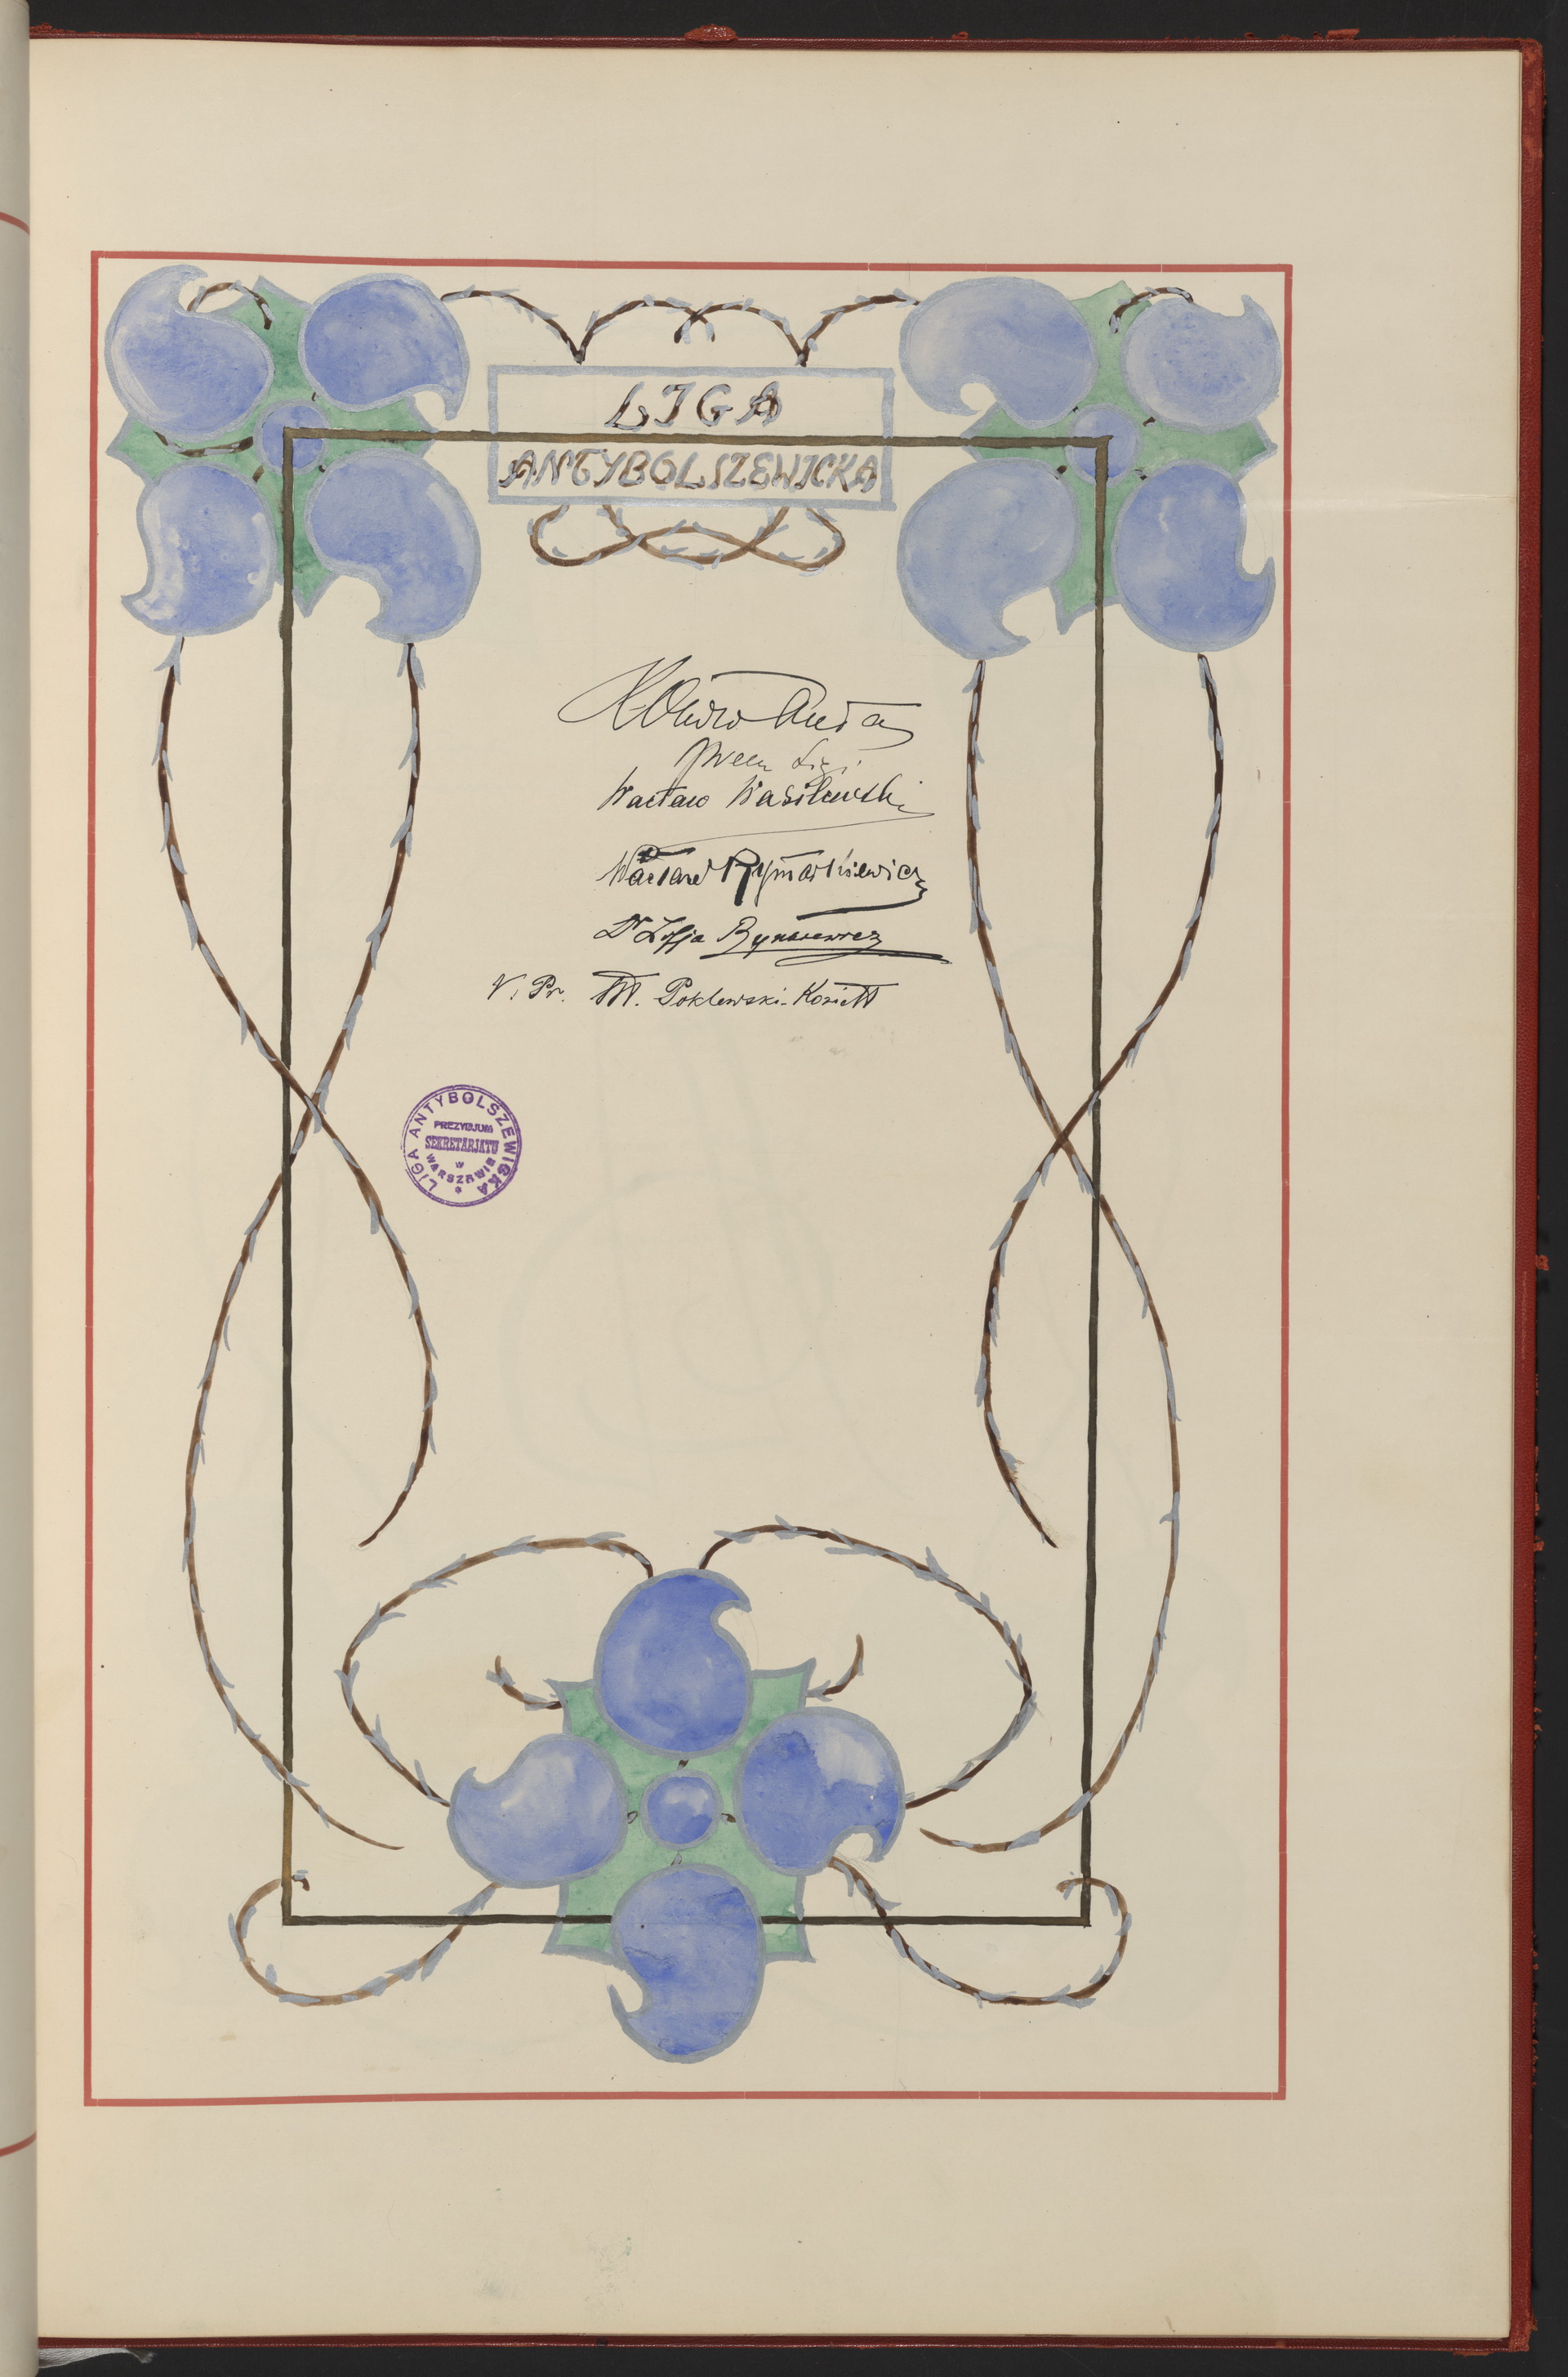 LIGA
ANTYBOLSZEWICKA
Ligi
Wacław Wasilewski
Wacław Rymarkiewicz
Dr Zofja
V. Pr. M. Poklewski-Koziełł
LIGA ANTYBOLSZEWICKA
PREZYDJUM
SEKRETARJATU
w
WARSZAWIE